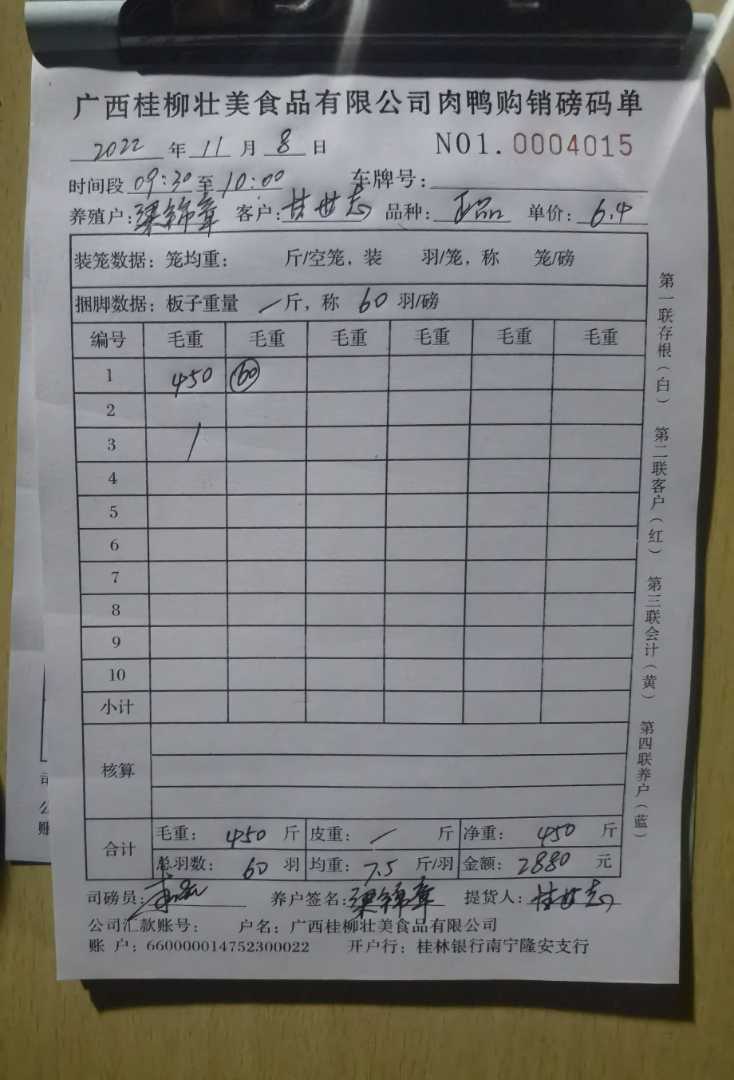 广西桂柳壮美食品有限公司肉鸭购销磅码单
2022 年 11 月 8 日 NO1. 0004015
时间段 09:30 至 10:00 车牌号:
养殖户: 梁锦章 客户: 甘世志 品种: 正品 单价: 6.4
装笼数据: 笼均重: 斤/空笼, 装 羽/笼, 称 笼/磅
捆脚数据: 板子重量 / 斤, 称 60 羽/磅
编号 毛重 毛重 毛重 毛重 毛重 毛重
1 450 60
2
3 /
4
5
6
7
8
9
10
小计
核算
合计 毛重: 450 斤 皮重: / 斤 净重: 450 斤
总羽数: 60 羽 均重: 7.5 斤/羽 金额: 2880 元
司磅员: 养户签名: 梁锦章 提货人: 甘世志
公司汇款账号: 户名: 广西桂柳壮美食品有限公司
账 户: 660000014752300022 开户行: 桂林银行南宁隆安支行
第一联存根(白) 第二联客户(红) 第三联会计(黄) 第四联养户(蓝)